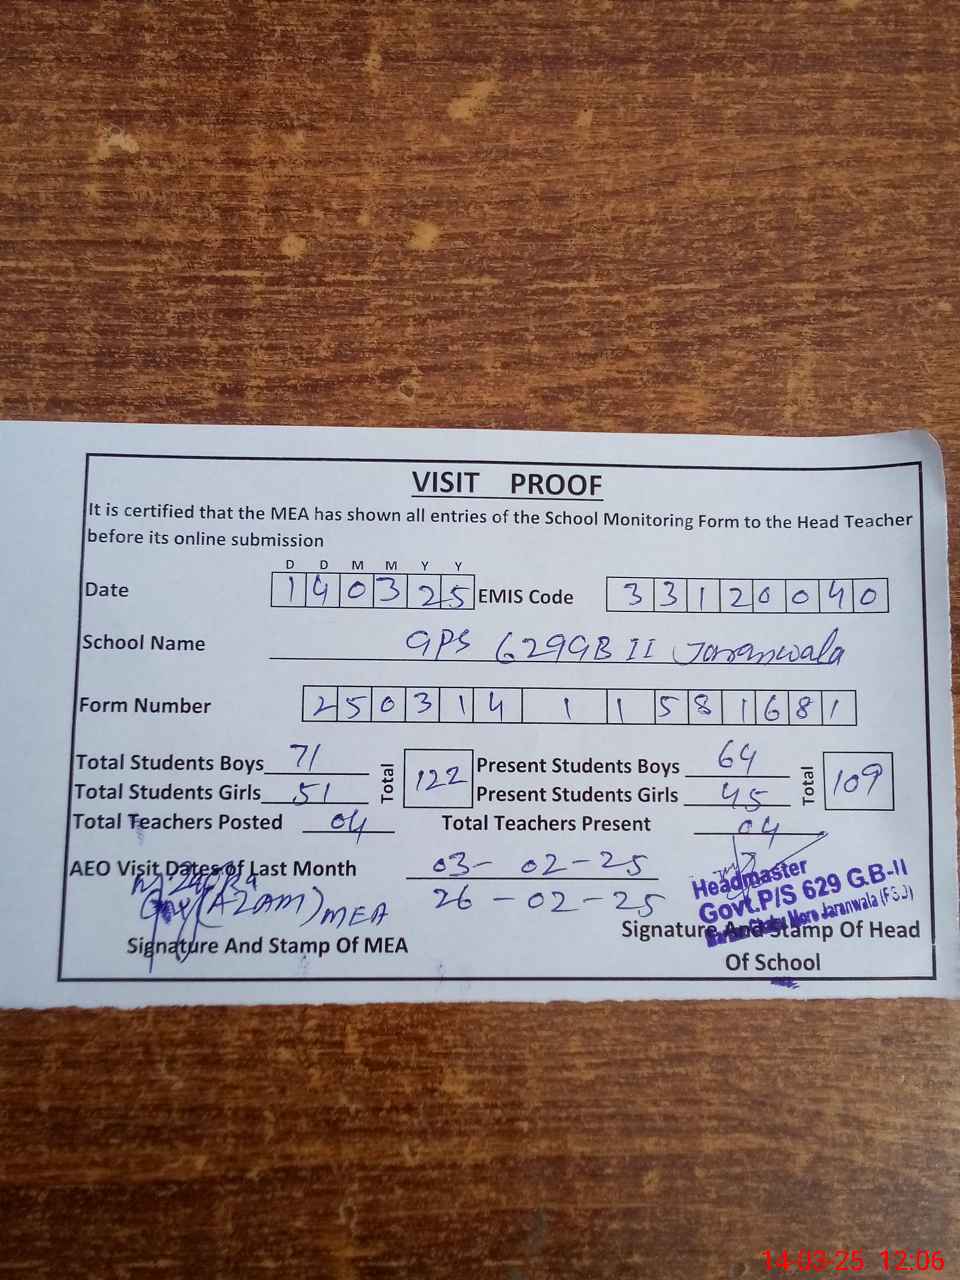 VISIT PROOF
It is certified that the MEA has shown all entries of the School Monitoring Form to the Head Teacher
before its online submission
D D M M Y Y
Date 1 4 0 3 2 5 EMIS Code 3 3 1 2 0 0 4 0
School Name GPS 629GB II Jaranwala
Form Number 2 5 0 3 1 4 1 1 5 8 1 6 8 1
Total Students Boys 71 Total 122 Present Students Boys 64 Total 109
Total Students Girls 51 Present Students Girls 45
Total Teachers Posted 04 Total Teachers Present 04
AEO Visit Dates of Last Month 03-02-25
26-02-25
(AZAM) MEA
Signature And Stamp Of MEA
Headmaster
Govt.P/S 629 G.B-II
Jaranwala (FSD)
Signature And Stamp Of Head
Of School
14-03-25 12:06